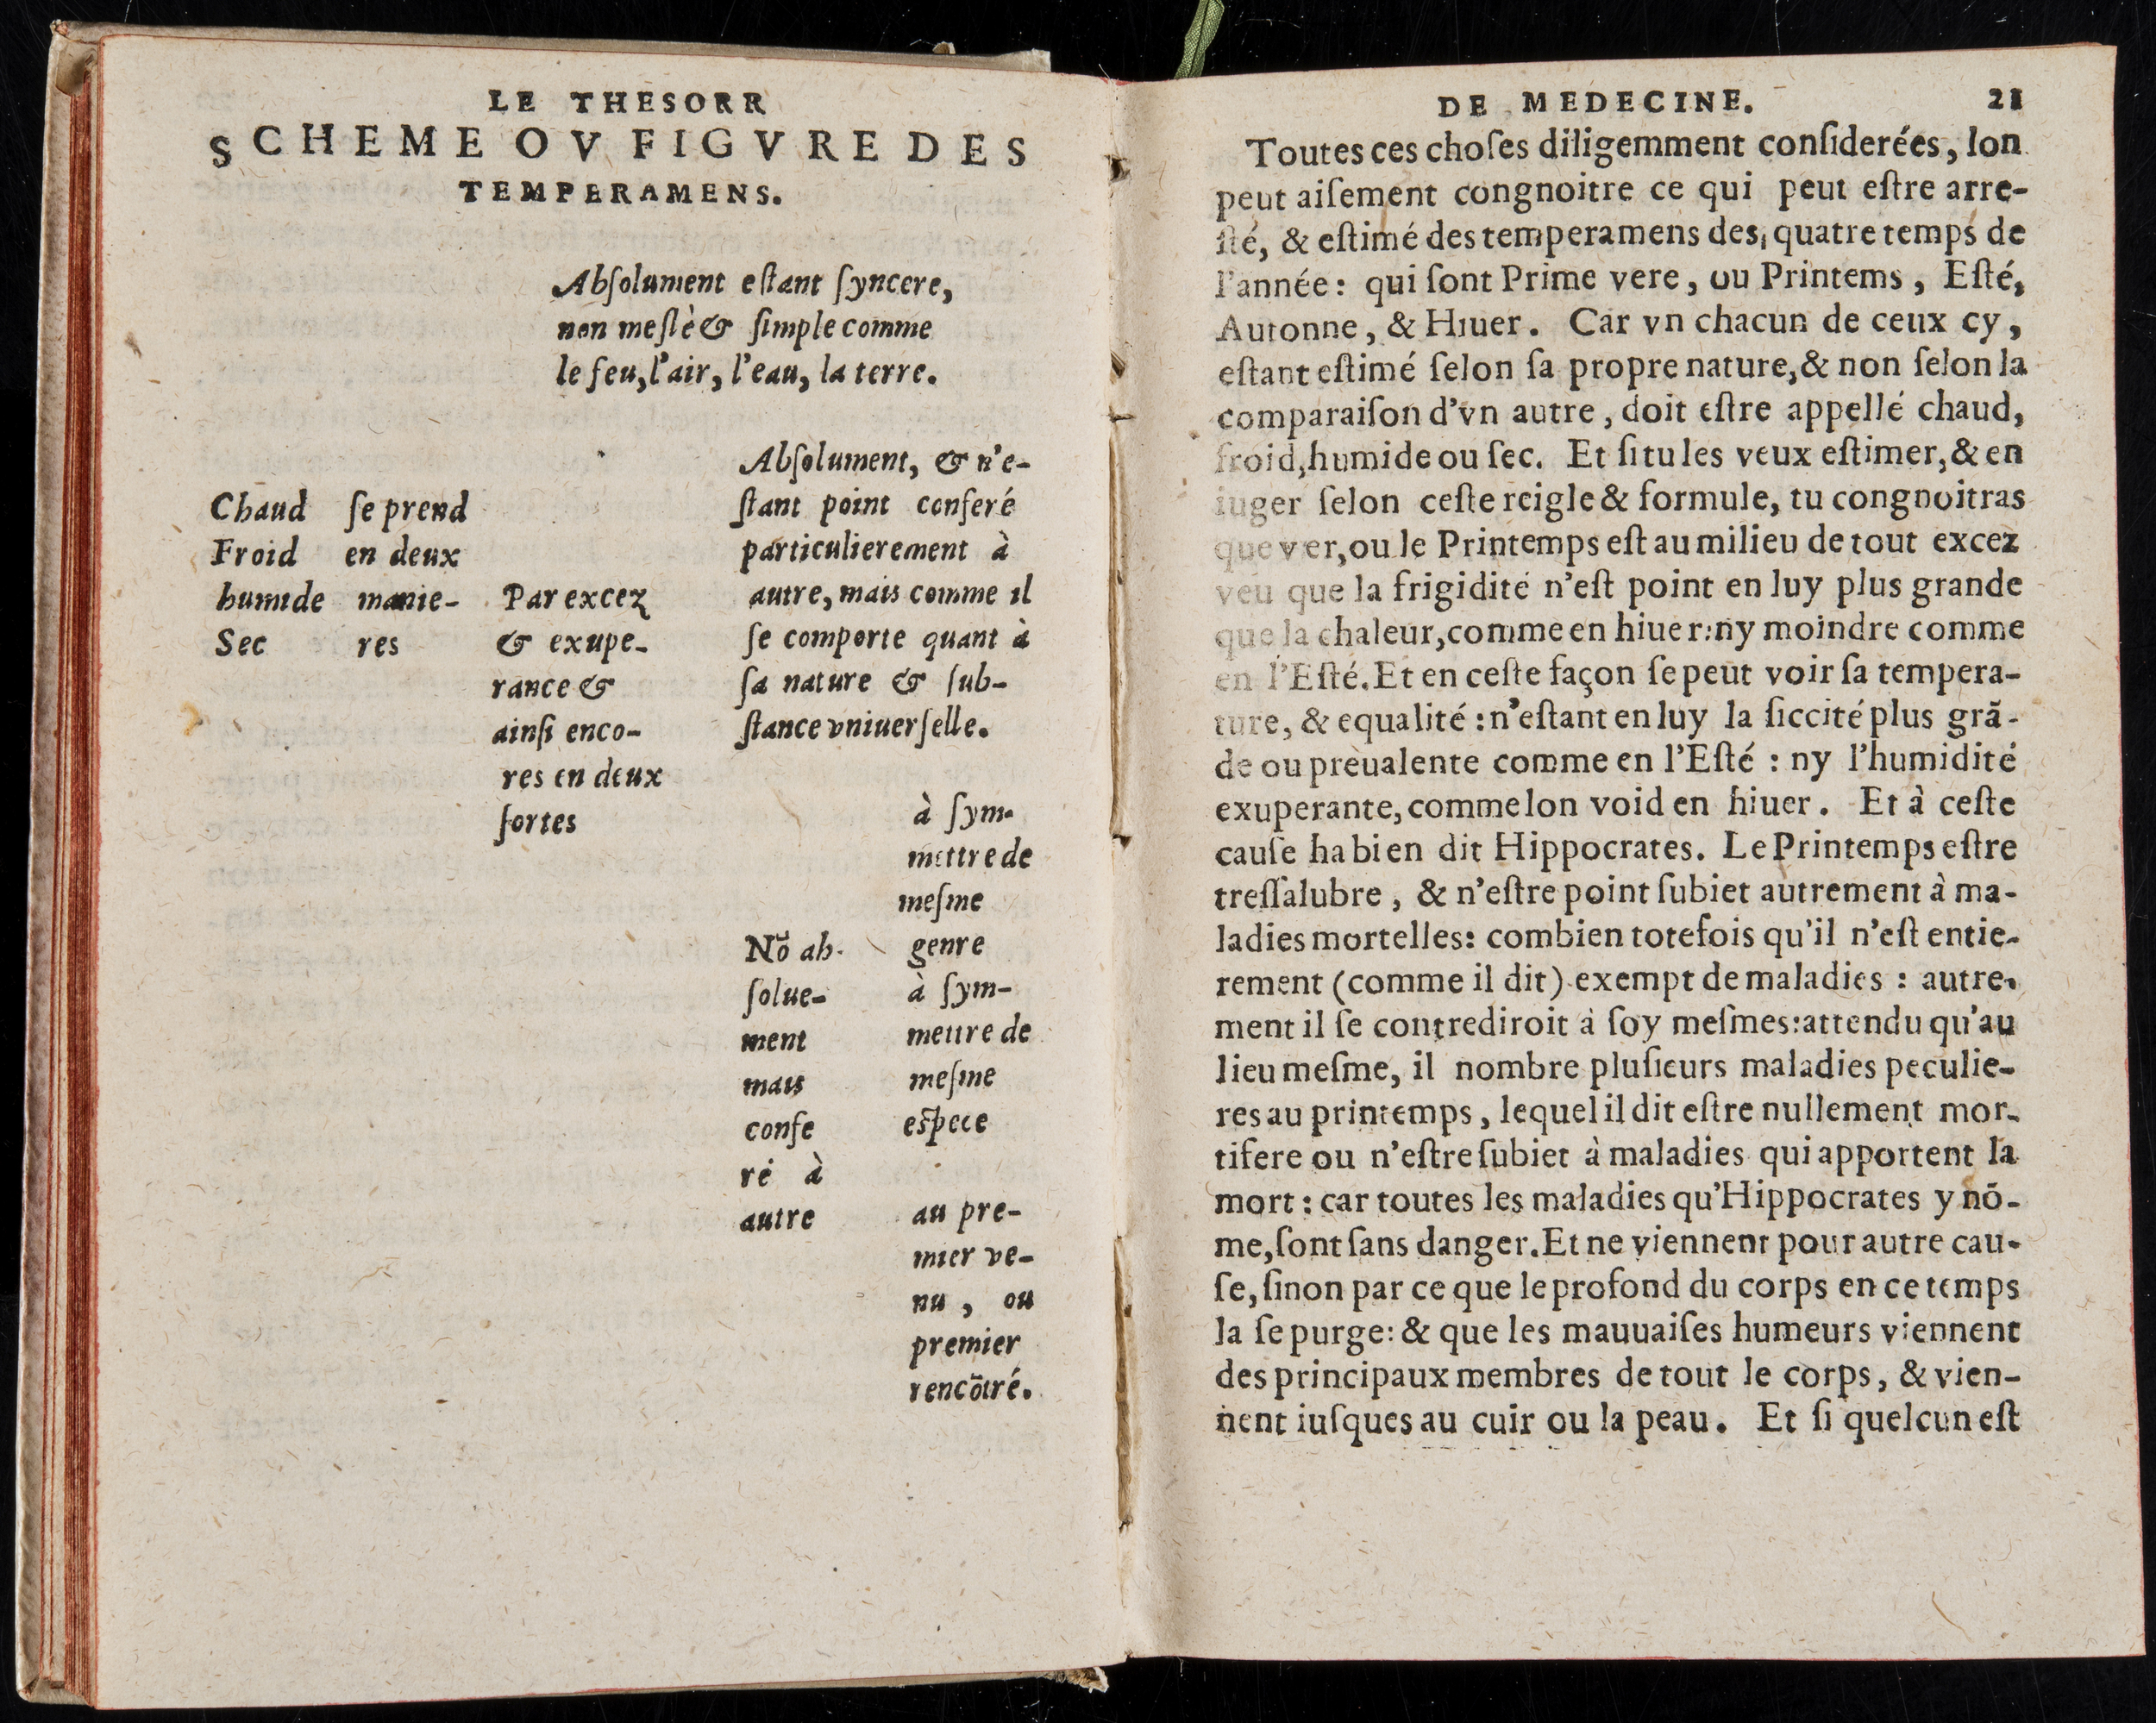 LE THESORR
SCHEME OV FIGVRE DES
TEMPERAMENS.
Abſolument eſtant ſyncere,
non meſlè & ſimple comme
le feu, l'air, l'eau, la terre.
Chaud
Froid
humide
Sec
ſe prend
en deux
manie-
res
Par excez
& exupe-
rance &
ainſi enco-
res en deux
ſortes
Abſolument, & n'e-
ſtant point conferé
particulierement à
autre, mais comme il
ſe comporte quant à
ſa nature & ſub-
ſtance vniuerſelle.
Nō ab-
ſolue-
ment
mais
confe
ré à
autre
à ſym-
mettre de
meſme
genre
à ſym-
mettre de
meſme
eſpece
au pre-
mier ve-
nu, ou
premier
rencōtré.
DE MEDECINE. 21
Toutes ces choſes diligemment conſiderées, lon
peut aiſement congnoitre ce qui peut eſtre arre-
ſté, & eſtimé des temperamens des quatre temps de
l'année: qui ſont Prime vere, ou Printems, Eſté,
Autonne, & Hiuer. Car vn chacun de ceux cy,
eſtant eſtimé ſelon ſa propre nature, & non ſelon la
comparaiſon d'vn autre, doit eſtre appellé chaud,
froid, humide ou ſec. Et ſi tu les veux eſtimer, & en
iuger ſelon ceſte reigle & formule, tu congnoitras
que ver, ou le Printemps eſt au milieu de tout excez
veu que la frigidité n'eſt point en luy plus grande
que la chaleur, comme en hiuer: ny moindre comme
en l'Eſté. Et en ceſte façon ſe peut voir ſa tempera-
ture, & equalité: n'eſtant en luy la ſiccité plus grā-
de ou preualente comme en l'Eſté: ny l'humidité
exuperante, comme lon void en hiuer. Et à ceſte
cauſe ha bien dit Hippocrates. Le Printemps eſtre
treſſalubre, & n'eſtre point ſubiet autrement à ma-
ladies mortelles: combien totefois qu'il n'eſt entie-
rement (comme il dit) exempt de maladies: autre-
ment il ſe contrediroit à ſoy meſmes: attendu qu'au
lieu meſme, il nombre pluſieurs maladies peculie-
res au printemps, lequel il dit eſtre nullement mor-
tifere ou n'eſtre ſubiet à maladies qui apportent la
mort: car toutes les maladies qu'Hippocrates y nō-
me, ſont ſans danger. Et ne viennent pour autre cau-
ſe, ſinon par ce que le profond du corps en ce temps
la ſe purge: & que les mauuaiſes humeurs viennent
des principaux membres de tout le corps, & vien-
nent iuſques au cuir ou la peau. Et ſi quelcun eſt